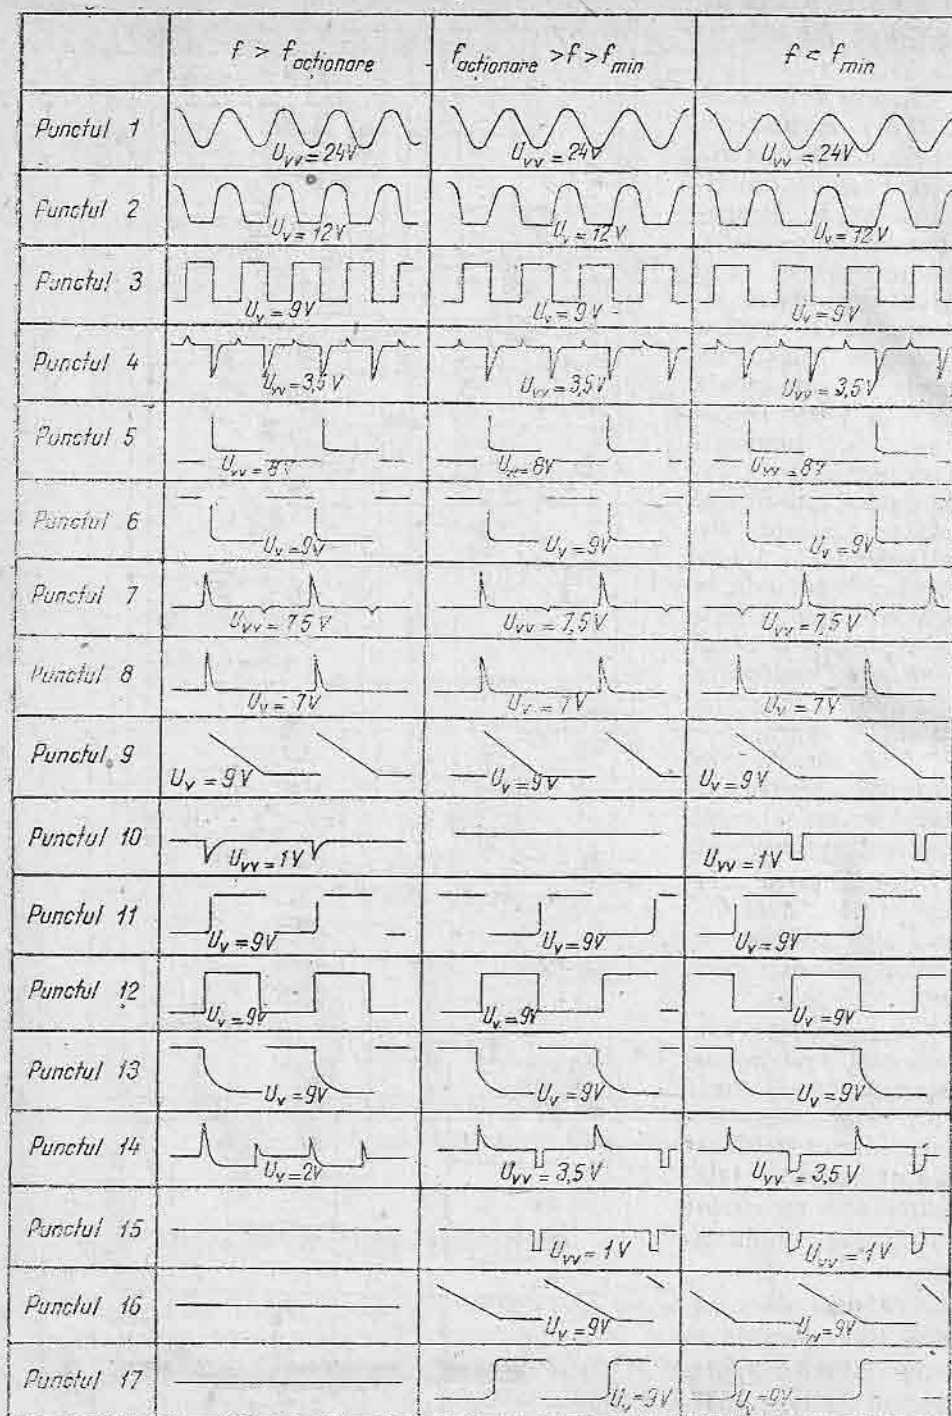 f > f acționare f acționare > f > f min f < f min
Punctul 1 U vv = 24V U vv = 24V U vv = 24V
Punctul 2 U v = 12V U v = 12V U v = 12V
Punctul 3 U v = 9V U v = 9V U v = 9V
Punctul 4 U vv = 3,5V U vv = 3,5V U vv = 3,5V
Punctul 5 U vv = 8V U vv = 8V U vv = 8V
Punctul 6 U v = 9V U v = 9V U v = 9V
Punctul 7 U vv = 7,5V U vv = 7,5V U vv = 7,5V
Punctul 8 U v = 7V U v = 7V U v = 7V
Punctul 9 U v = 9V U v = 9V U v = 9V
Punctul 10 U vv = 1V U vv = 1V
Punctul 11 U v = 9V U v = 9V U v = 9V
Punctul 12 U v = 9V U v = 9V U v = 9V
Punctul 13 U v = 9V U v = 9V U v = 9V
Punctul 14 U v = 2V U vv = 3,5V U vv = 3,5V
Punctul 15 U vv = 1V U vv = 1V
Punctul 16 U v = 9V U v = 9V
Punctul 17 U v = 9V U v = 9V